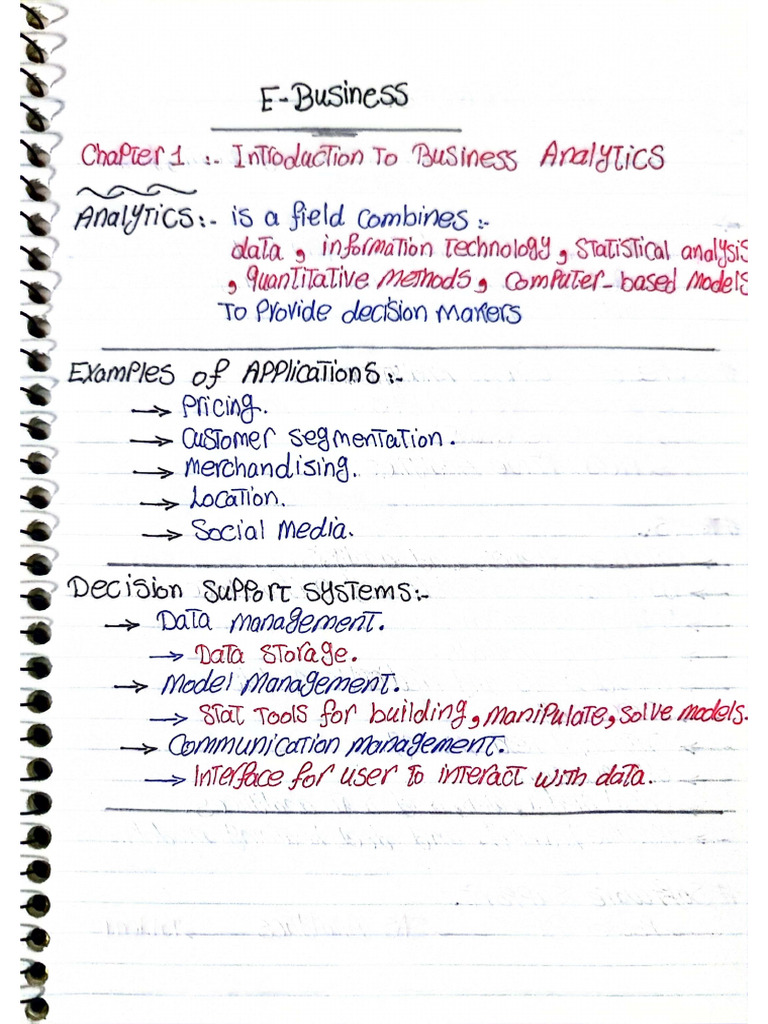 E-Business
Chapter 1 :- Introduction To Business Analytics
Analytics:- is a field combines :-
data, information technology, statistical analysis
, quantitative methods, computer-based models
To Provide decision makers
Examples of Applications:-
→ Pricing.
→ Customer segmentation.
→ Merchandising.
→ Location.
→ Social Media.
Decision Support Systems:-
→ Data management.
→ Data storage.
→ Model Management.
→ Stat Tools for building, manipulate, solve models.
→ Communication Management.
→ Interface for user to interact with data.